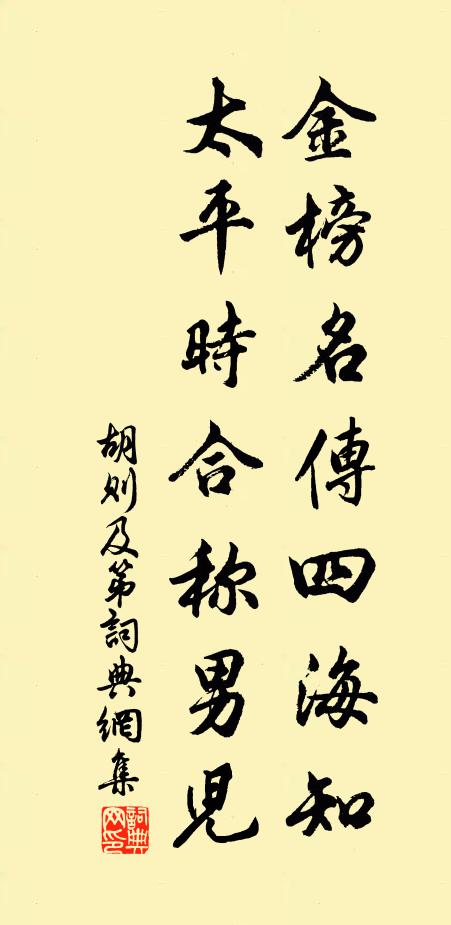 金榜名傳四海知
太平時合称男児
胡則及第詞典網集
詞典网印